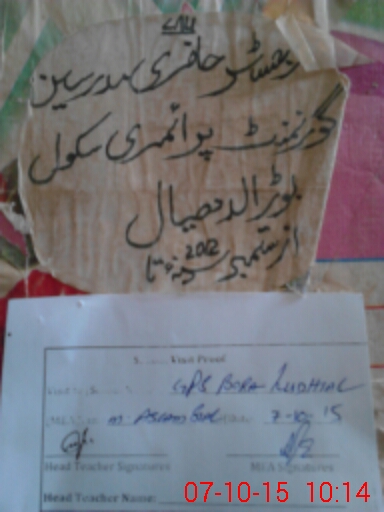 ۷۸۶
رجسٹر حاضری مدرسین
گورنمنٹ پرائمری سکول
بوڑالدھیال
از ستمبر 2012 تا
Visit Proof
GPS BORA LUDHIAL
M. ASLAM 7-10-15
Head Teacher Signatures
MEA Signatures
Head Teacher Name:
07-10-15 10:14